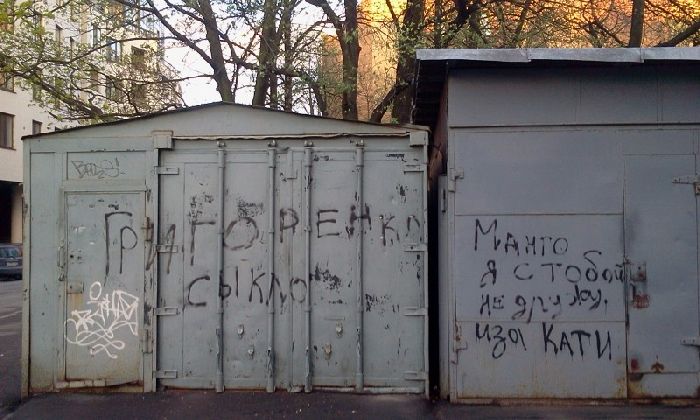 ГРИГОРЕНКО
СЫКЛО
Манго
я с тобой
не дружу.
иза Кати